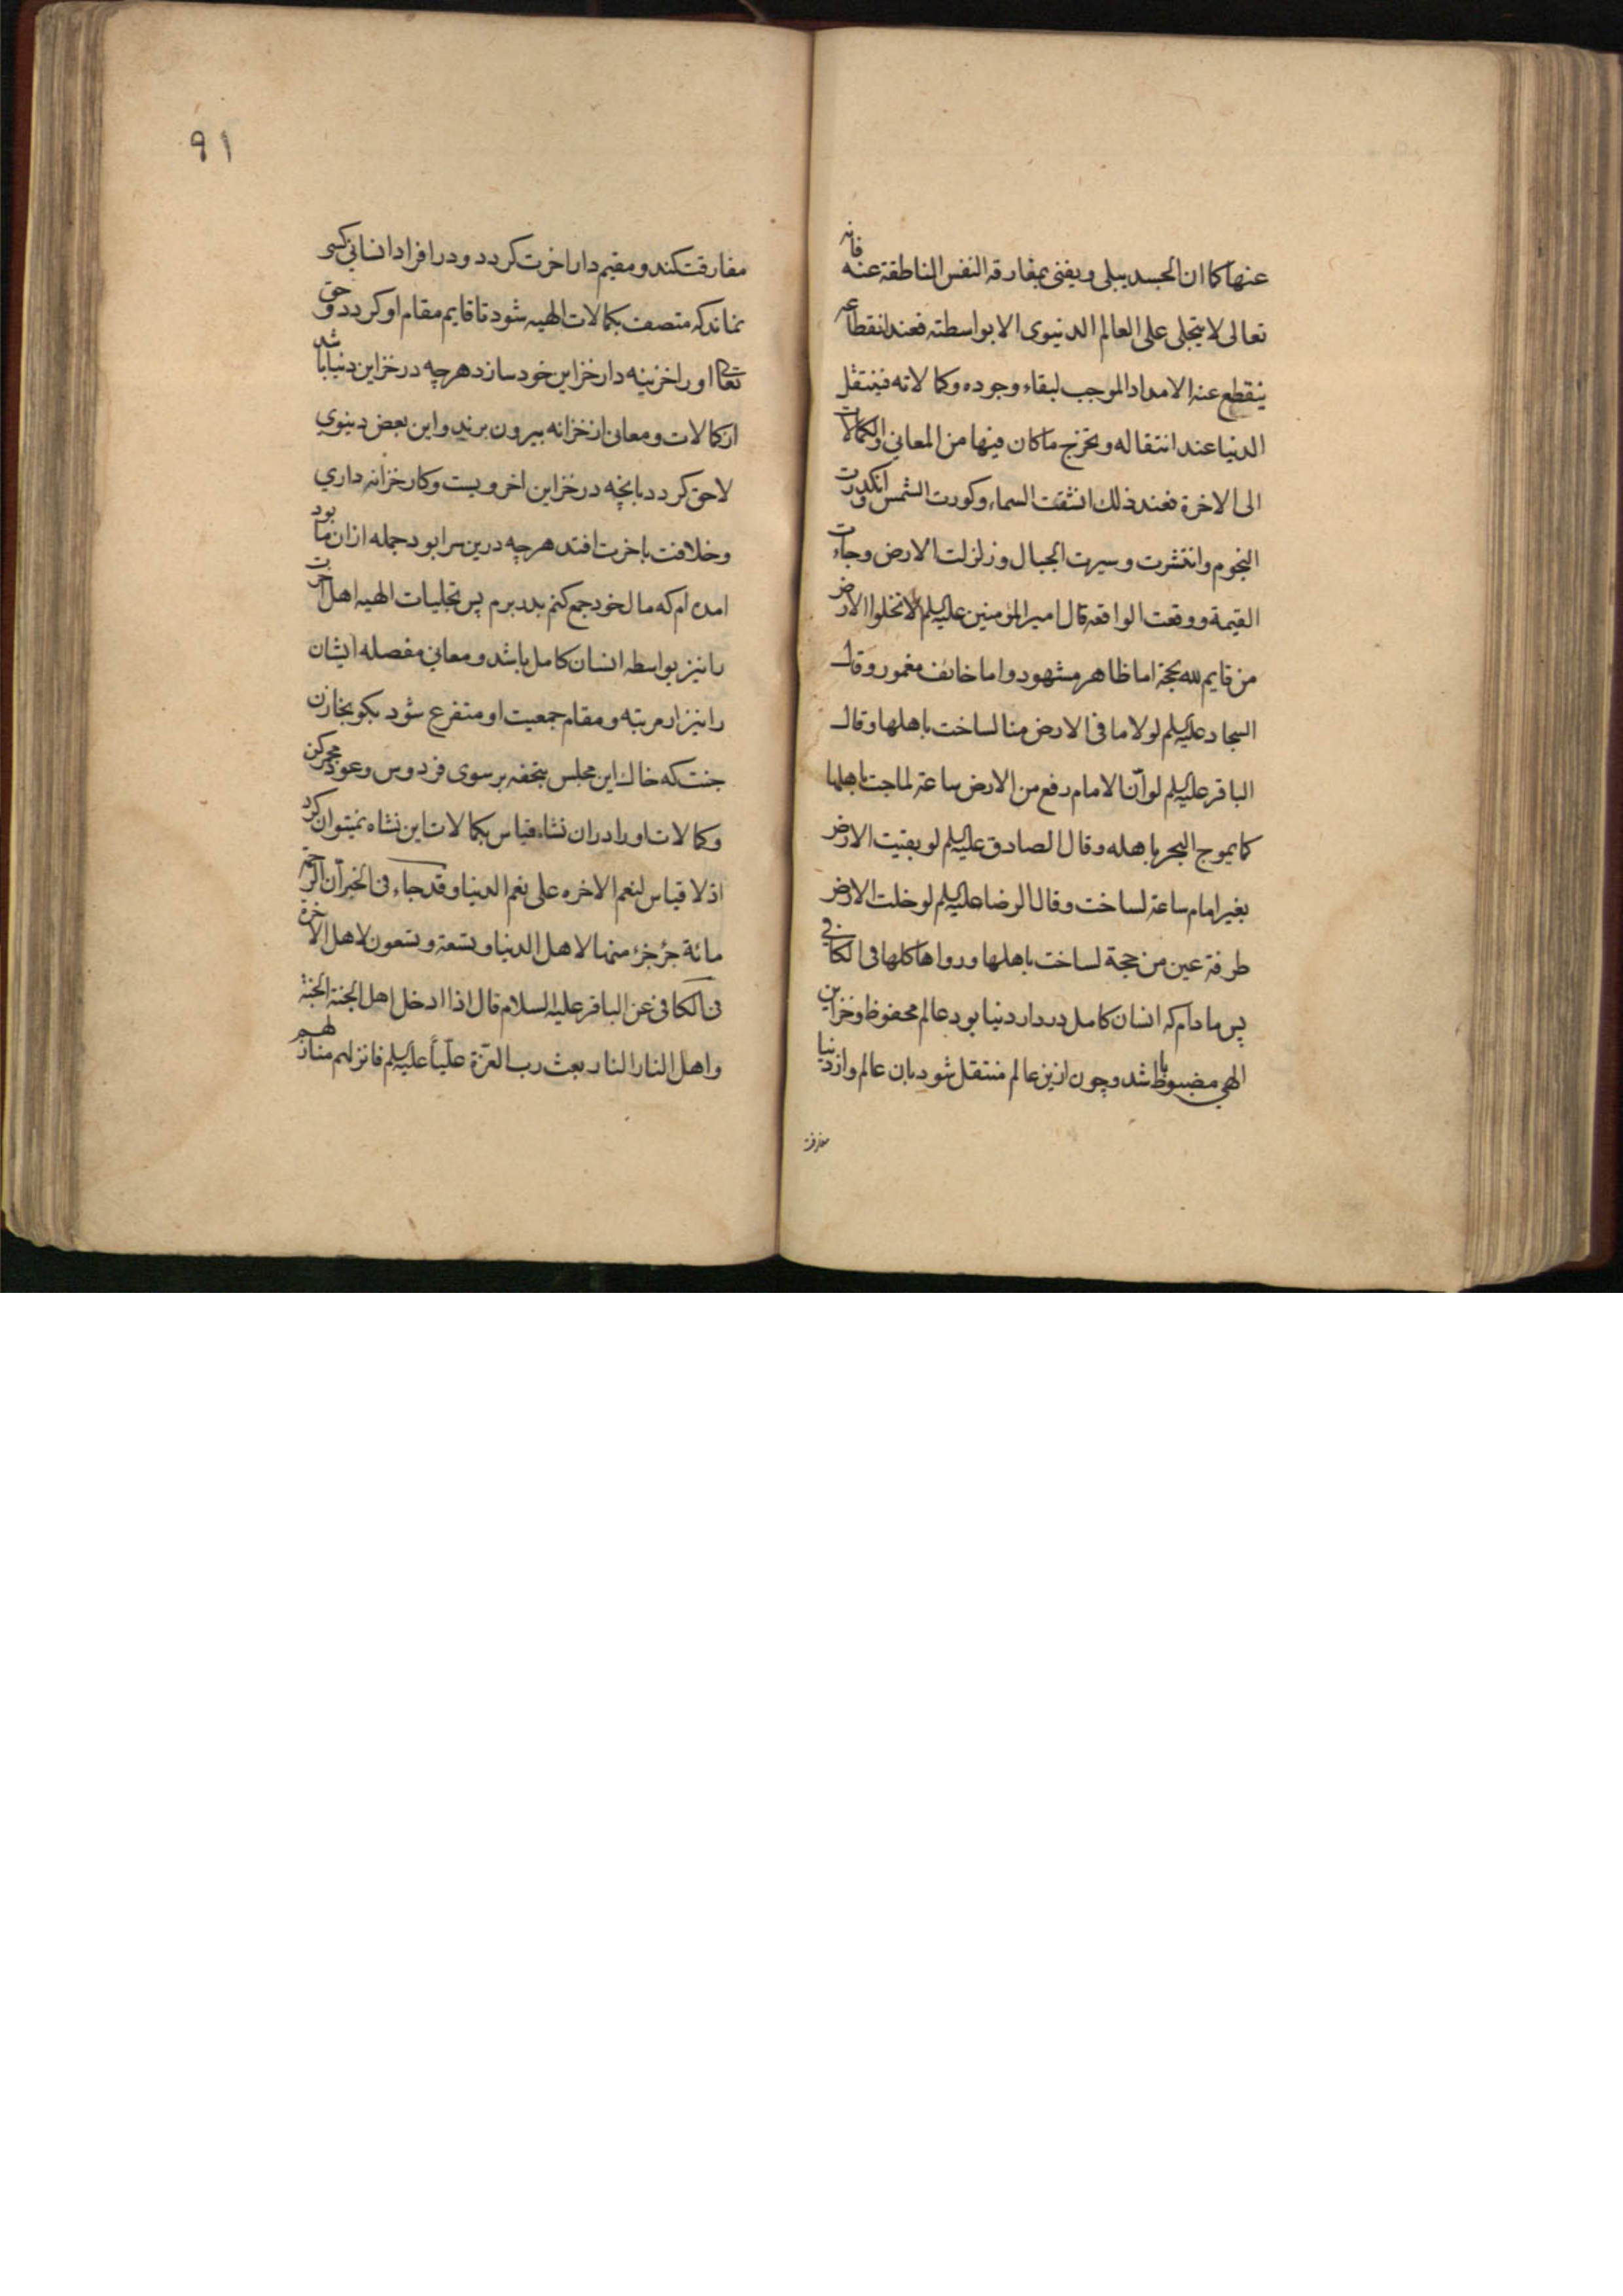 عنها كما ان الجسد يبلى ويفنى بمفارقه النفس الناطقة عنه فانه
تعالى لا يتجلى على العالم الدنيوى الا بواسطته فعند انقطاعه
ينقطع عنه الامداد الموجب لبقاء وجوده وكمالاته فينتقل
الدنيا عند انتقاله ويخرج ما كان فيها من المعانى والكمالات
الى الاخرة فعند ذلك انشقت السماء وكورت الشمس وانكدرت
النجوم وانتشرت وسيرت الجبال وزلزلت الارض وجاءت
القيمة ووقعت الواقعه قال امير المؤمنين عليه السلم لا تخلوا الارض
من قايم لله بحجة اما ظاهر مشهود واما خائف مغمور وقال
السجاد عليه السلم لولا ما فى الارض منا لساخت باهلها وقال
الباقر عليه السلم لو انّ الامام رفع من الارض ساعة لماجت باهلها
كما يموج البحر باهله وقال الصادق عليه السلم لو بقيت الارض
بغير امام ساعة لساخت وقال الرضا عليه السلم لو خلت الارض
طرفة عين من حجة لساخت باهلها ورواها كلها فى الكافي
پس مادام كه انسان كامل در دار دنيا بود عالم محفوظ وخزاين
الهي مضبوط باشد وچون ازين عالم منتقل شود بان عالم واز دنيا
مفارقت
٩١
مفارقت كند ومقيم دار اخرت كردد ودر افراد انسانى كسى
نماند كه متصف بكمالات الهيه شود تا قايم مقام او كردد وحق
تعالى او را خزينه دار خزاين خود سازد هرچه در خزاين دنيا باشد
از كمالات ومعانى از خزانه بيرون برند واين بعض دينوي
لاحق كردد بانچه در خزاين اخرويست وكار خزانه داري
وخلافت باخرت افتد هرچه درين سرا بود جمله از ان ما بود
امده ام كه مال خود جمع كنم بدر برم پس تجليات الهيه اهل اخرت
را نيز بواسطه انسان كامل باشد ومعاني مفصله ايشان
را نيز از مرتبه ومقام جمعيت او متفرع شود بكو بخازن
جنت كه خاك اين مجلس بتحفه بر سوى فردوس وعود مجمر كن
وكمالات او را در ان نشاء قياس بكمالات اين نشاه نميتوان كرد
اذ لا قياس لنعم الاخره على نعم الدنيا وقد جاء فى الخبر انّ الرحمة
مائة جزء جزء منها لاهل الدنيا وتسعة وتسعون لاهل الاخرة
فى الكافى عن الباقر عليه السلام قال اذا ادخل اهل الجنة الجنة
واهل النار النار بعث رب العزّة عليّاً عليه السلم فانزلهم منازلهم